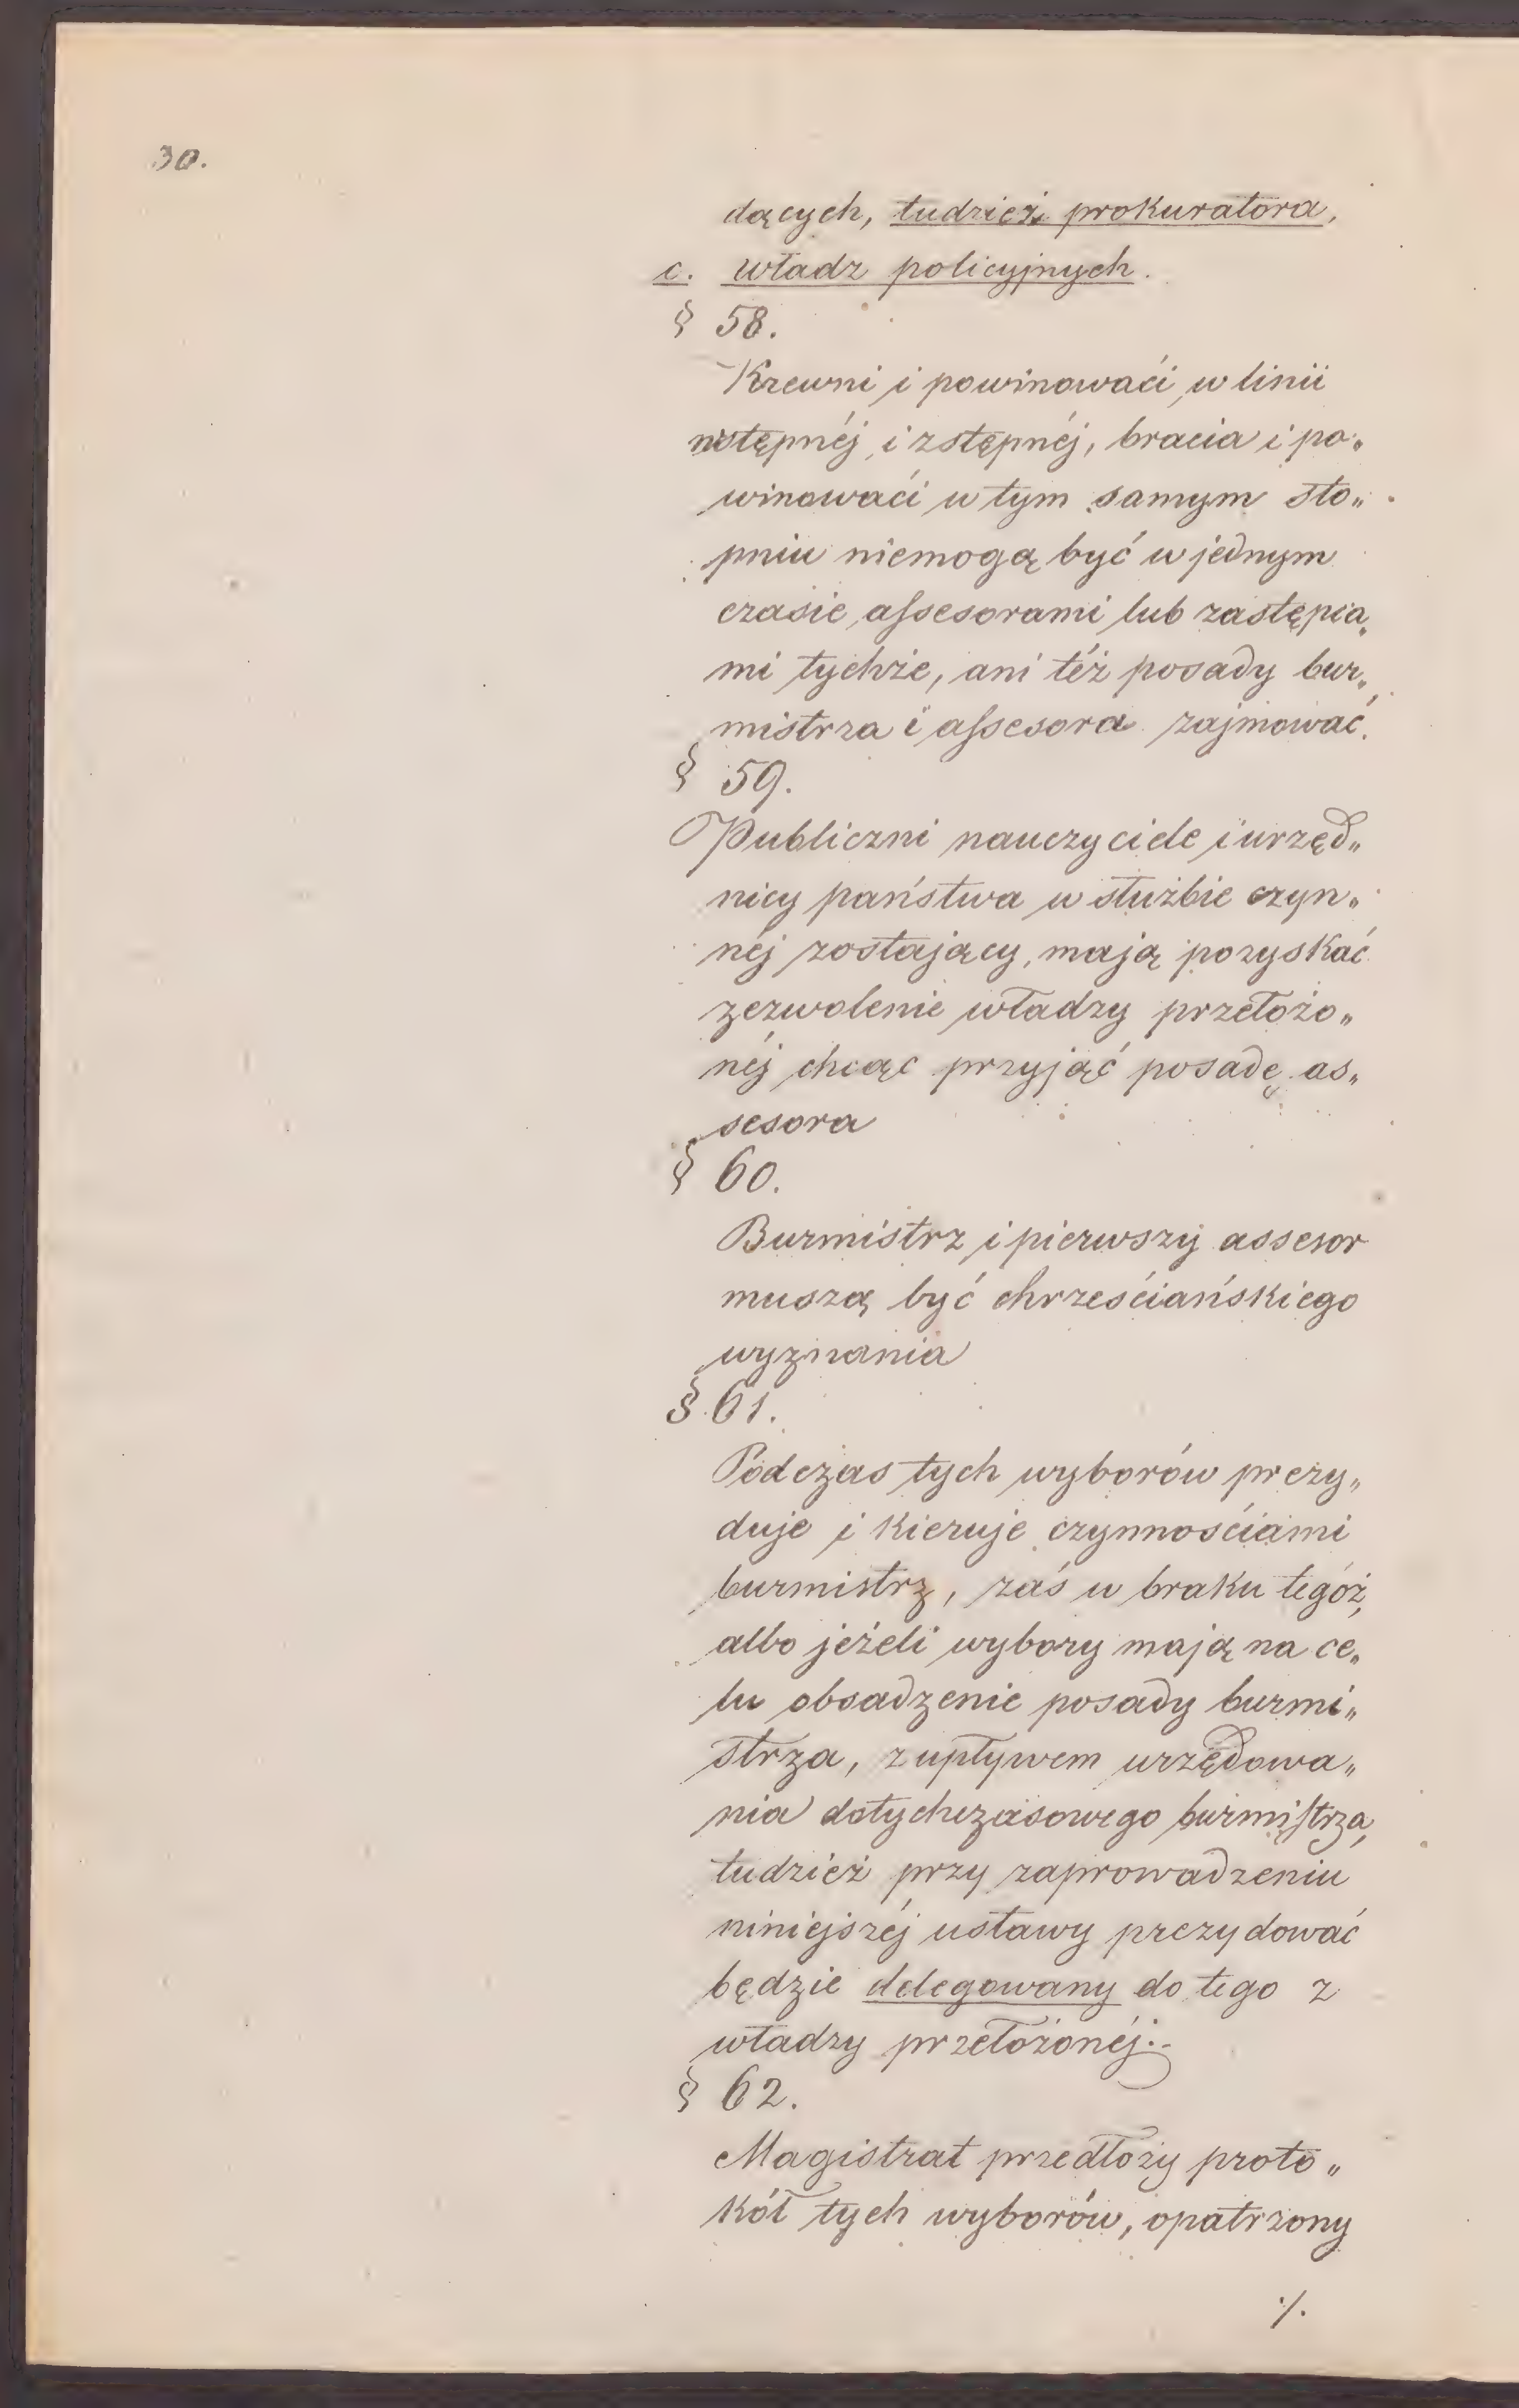 30.
dących, tudzież prokuratora,
c. władz policyjnych.
§ 58.
Krewni i powinowaći w linii
wstępnéj i zstępnéj, bracia i po„
winowaći w tym samym sto„
pniu niemogą być w jednym
czasie assesorami lub zastępca„
mi tychże, ani téż posady bur„
mistrza i assesora zajmować.
§ 59.
Publiczni nauczyciele i urzęd„
nicy państwa w służbie czyn„
néj zostający, mają pozyskać
zezwolenie władzy przełożo„
néj chcąc przyjąć posadę as„
sesora
§ 60.
Burmistrz i pierwszy assesor
muszą być chrześciańskiego
wyznania
§ 61.
Podczas tych wyborów prezy„
duje i kieruje czynnościami
burmistrz, zaś w braku tegóż,
albo jeżeli wybory mają na ce„
lu obsadzenie posady burmi„
strza, z upływem urzędowa„
nia dotychczasowego burmistrza,
tudzież przy zaprowadzeniu
niniejszéj ustawy prezydować
będzie delegowany do tego z
władzy przełożonéj.-
§ 62.
Magistrat przedłoży proto„
kół tych wyborów, opatrzony
./.